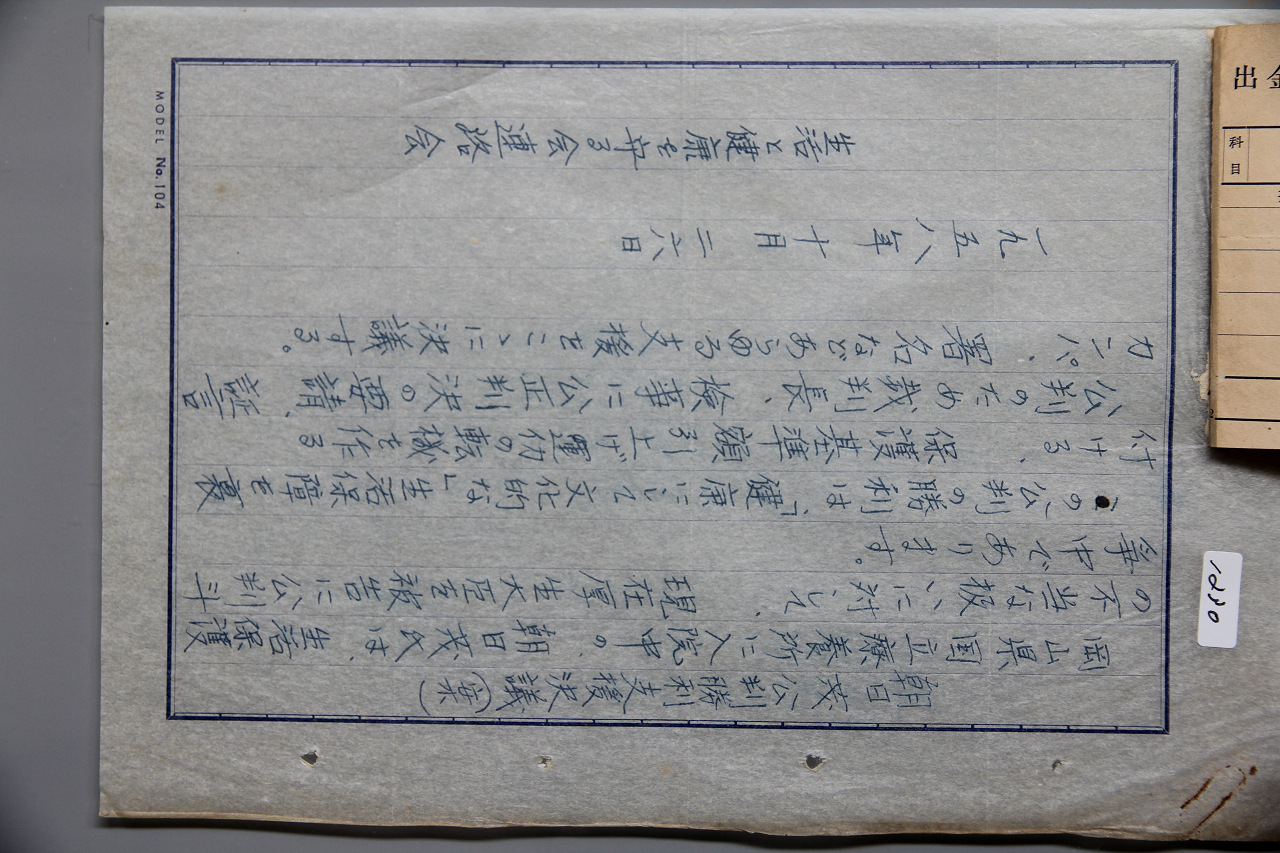 朝日茂公判勝利支援決議(案)
岡山県国立療養所に入院中の、朝日茂氏は、生活保護
の不当な扱いに対して、現在厚生大臣を被告に公判斗
争中であります。
この公判の勝利は、「健康にして文化的な」生活保障を裏
付ける、保護基準額引上げ運動の転機を作る
公判のため裁判長、検事に公正判決の要請、証言
カンパ、署名などあらゆる支援をこゝに決議する。
一九五八年十月二六日
生活と健康を守る会連絡会
MODEL No.104
1280
出金
科目